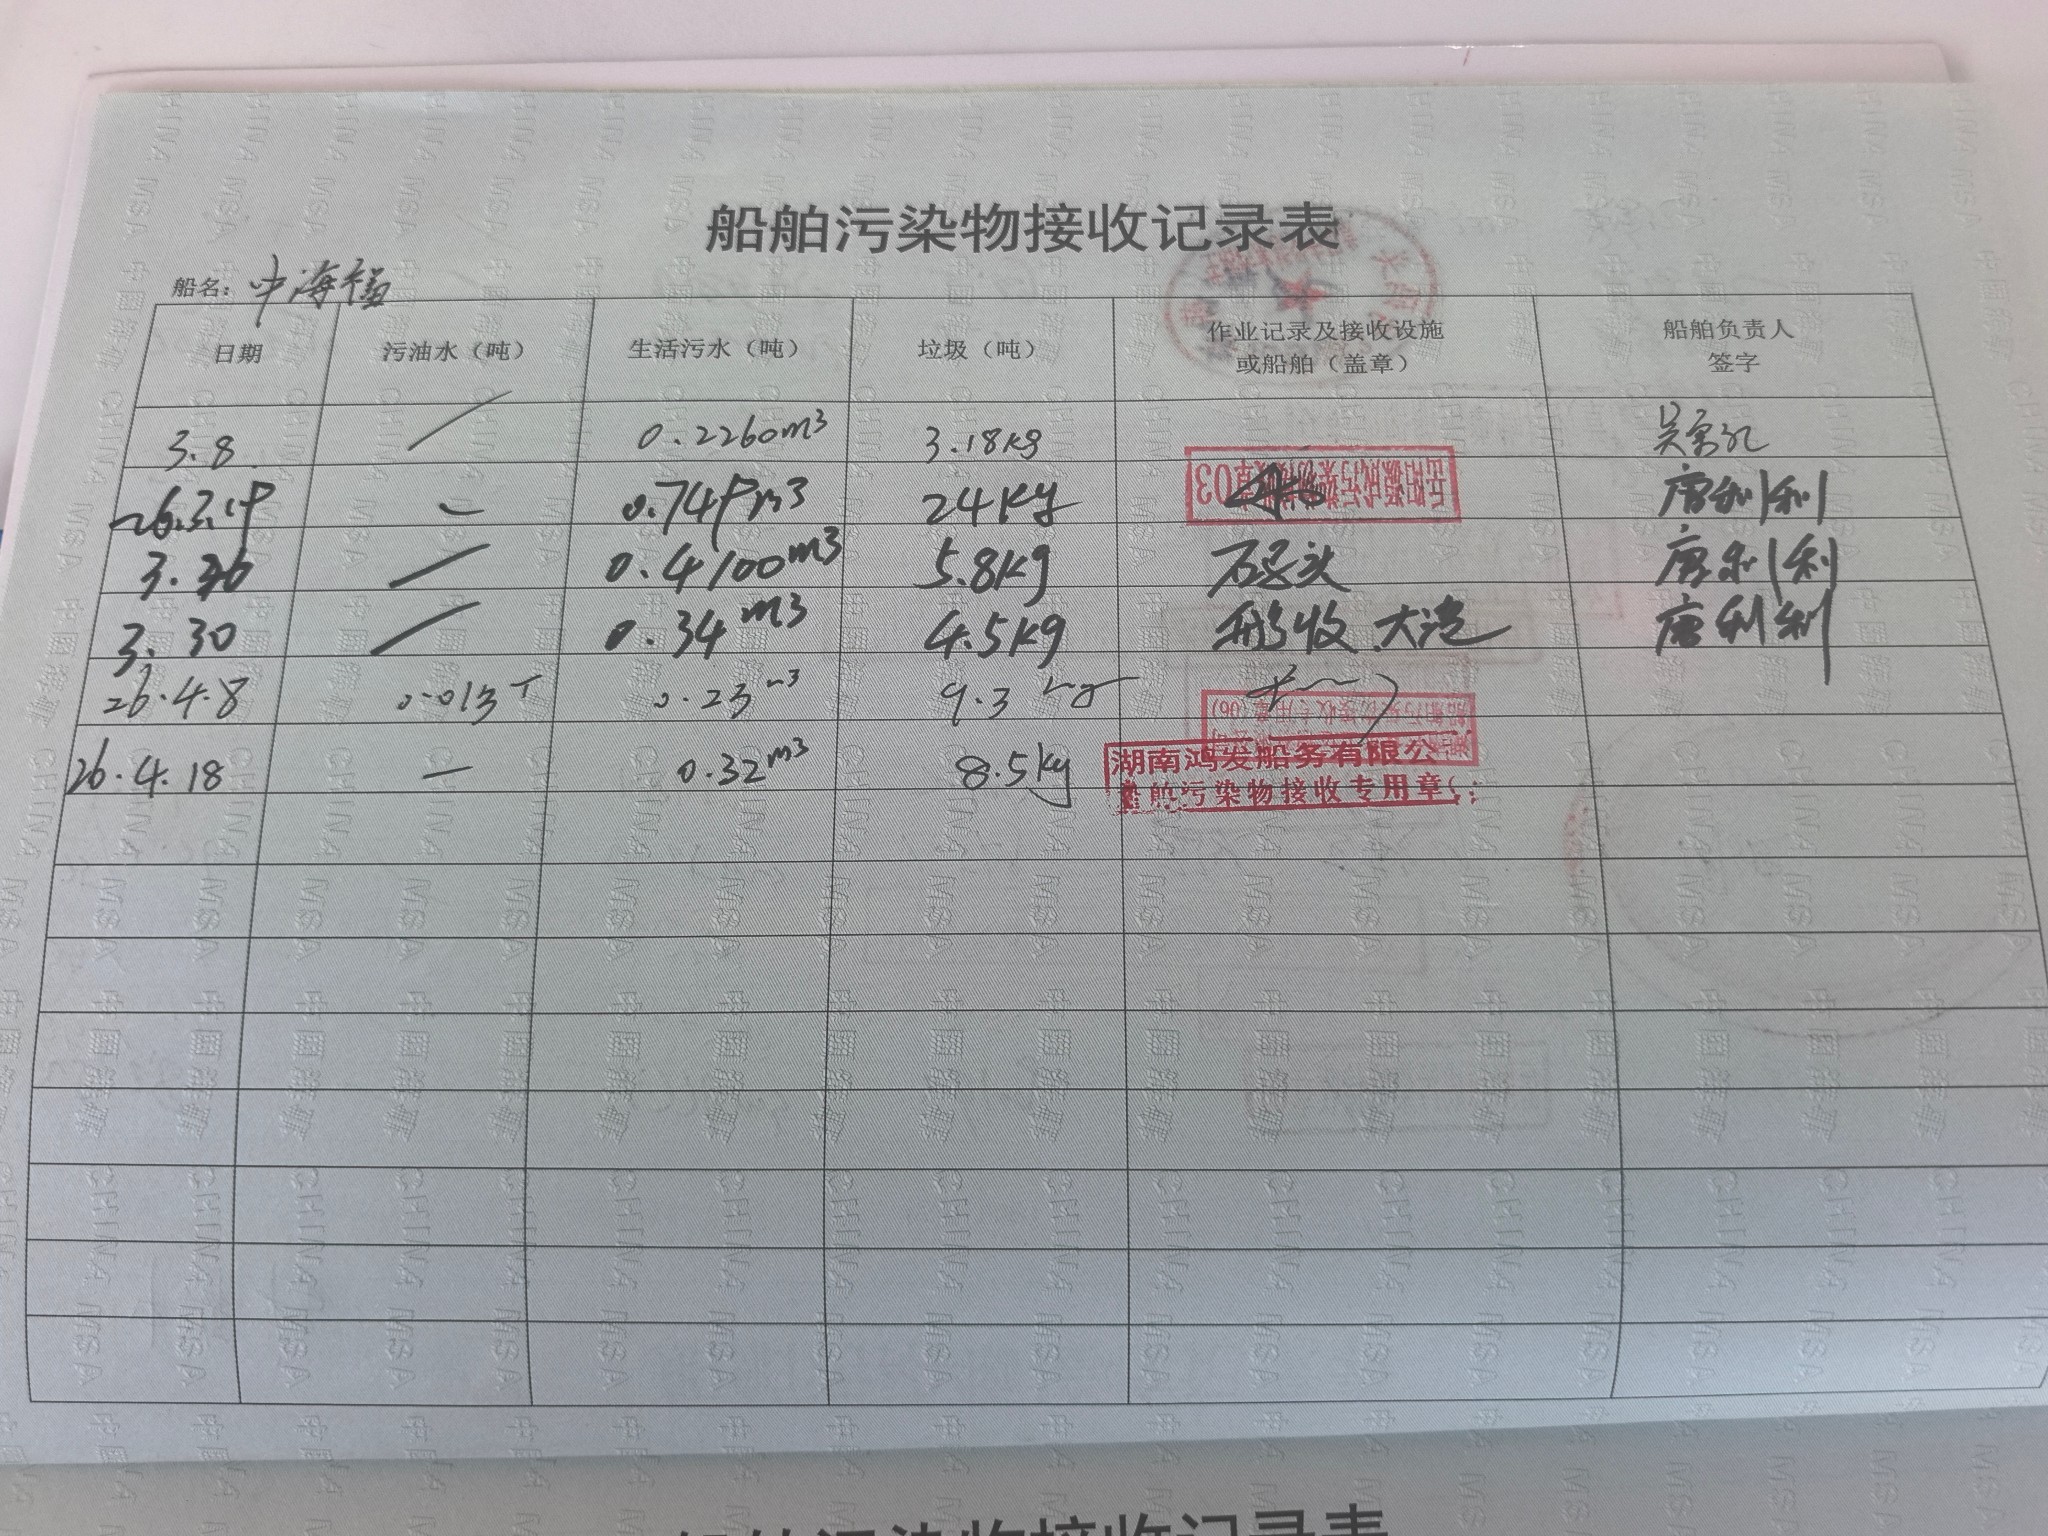 船舶污染物接收记录表
船名：中海福
日期 污油水（吨） 生活污水（吨） 垃圾（吨） 作业记录及接收设施或船舶（盖章） 船舶负责人签字
3.8 / 0.2260m³ 3.18kg
26.3.19 - m³ 24kg 唐利利
3.26 / 0.4100m³ 5.8kg 码头 唐利利
3.30 / 0.34m³ 4.5kg 唐利利
26.4.8 0.013T 0.23m³ 9.3kg
26.4.18 - 0.32m³ 8.5kg
湖南鸿发船务有限公
船舶污染物接收专用章
CHINA MSA 中国海事
船舶污染物接收记录表